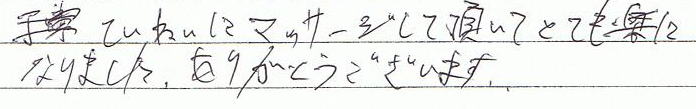 ていねいにマッサージして頂いてとても楽に
なりました。ありがとうございます。